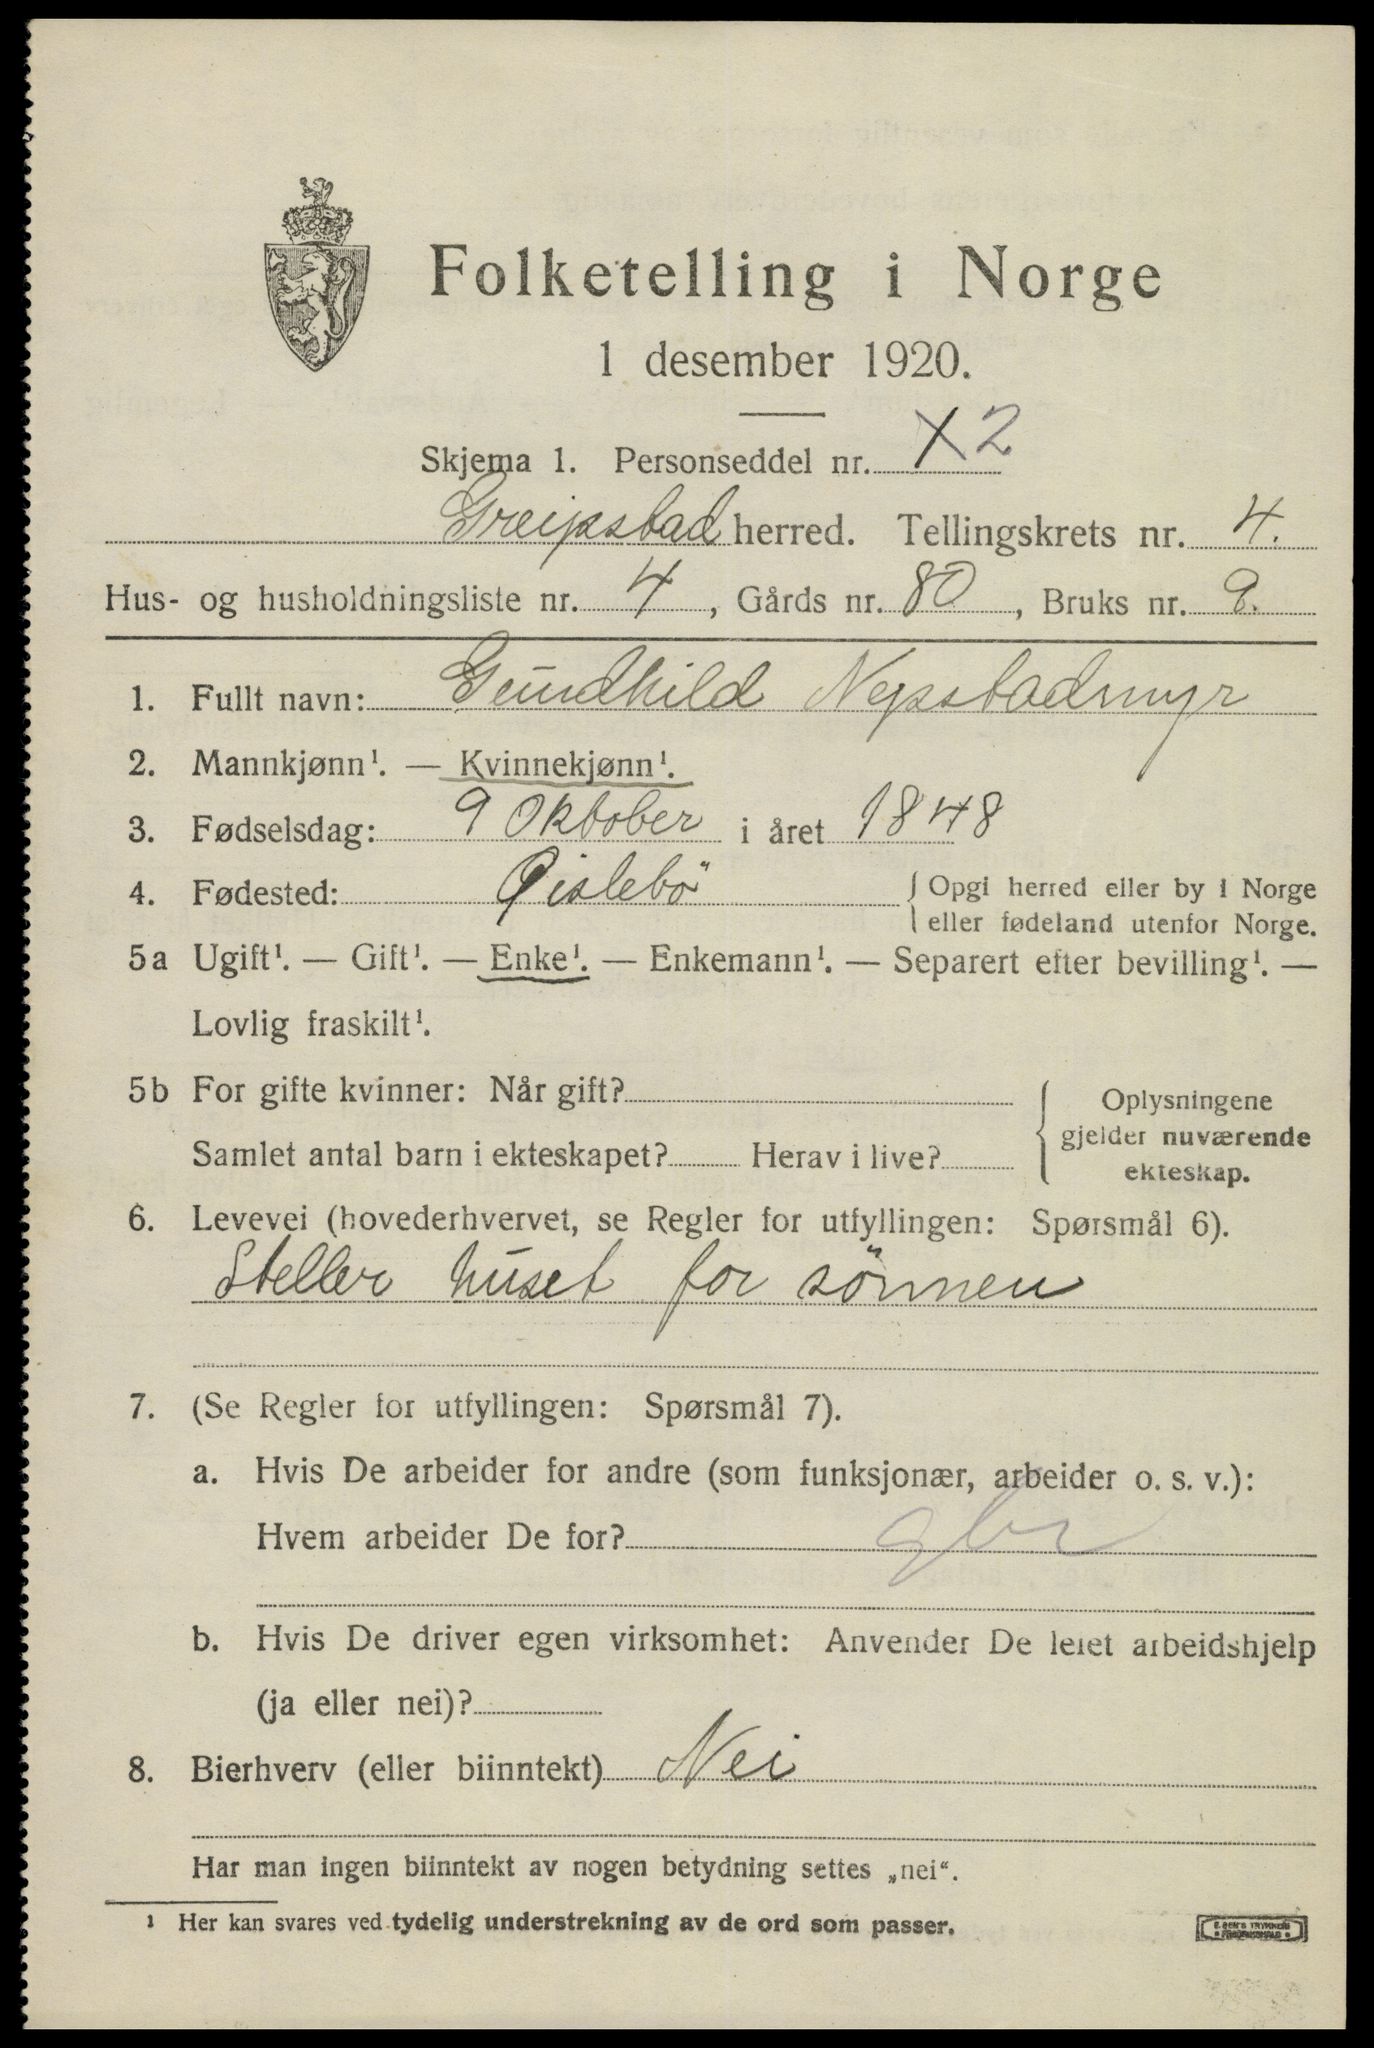 Folketelling i Norge
1 desember 1920.
Skjema 1. Personseddel nr. X 2
Greipstad herred. Tellingskrets nr. 4.
Hus- og husholdningsliste nr. 4, Gårds nr. 80, Bruks nr. 9.
1. Fullt navn: Gundhild Nepstadmyr
2. Mannkjønn¹. — Kvinnekjønn¹.
3. Fødselsdag: 9 Oktober i året 1848
4. Fødested: Øislebö { Opgi herred eller by i Norge
eller fødeland utenfor Norge.
5a Ugift¹. — Gift¹. — Enke¹. — Enkemann¹. — Separert efter bevilling¹. —
Lovlig fraskilt¹.
5b For gifte kvinner: Når gift?
Samlet antal barn i ekteskapet? Herav i live?
{ Oplysningene
gjelder nuværende
ekteskap.
6. Levevei (hovederhvervet, se Regler for utfyllingen: Spørsmål 6).
Steller huset for sönnen
7. (Se Regler for utfyllingen: Spørsmål 7).
a. Hvis De arbeider for andre (som funksjonær, arbeider o. s. v.):
Hvem arbeider De for? gbr
b. Hvis De driver egen virksomhet: Anvender De leiet arbeidshjelp
(ja eller nei)?
8. Bierhverv (eller biinntekt) Nei
Har man ingen biinntekt av nogen betydning settes „nei“.
¹ Her kan svares ved tydelig understrekning av de ord som passer.